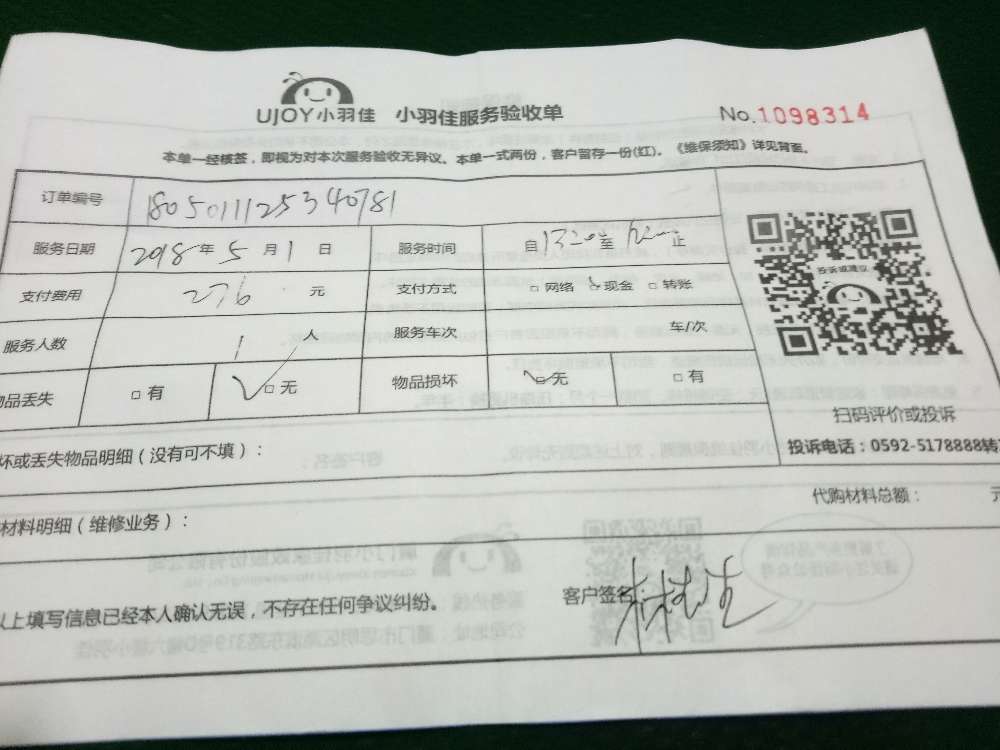 UJOY小羽佳 小羽佳服务验收单 No.1098314
本单一经核签，即视为对本次服务验收无异议。本单一式两份，客户留存一份(红)。《维保须知》详见背面。
订单编号 1805011125340781
服务日期 2018年5月1日 服务时间 自13:20至 止
投诉或建议
支付费用 276 元 支付方式 □网络 ☑现金 □转账
服务人数 1 人 服务车次 车/次
物品丢失 □有 ☑无 物品损坏 ☑无 □有
扫码评价或投诉
投诉电话：0592-5178888转
坏或丢失物品明细（没有可不填）：
代购材料总额： 元
材料明细（维修业务）：
以上填写信息已经本人确认无误，不存在任何争议纠纷。 客户签名